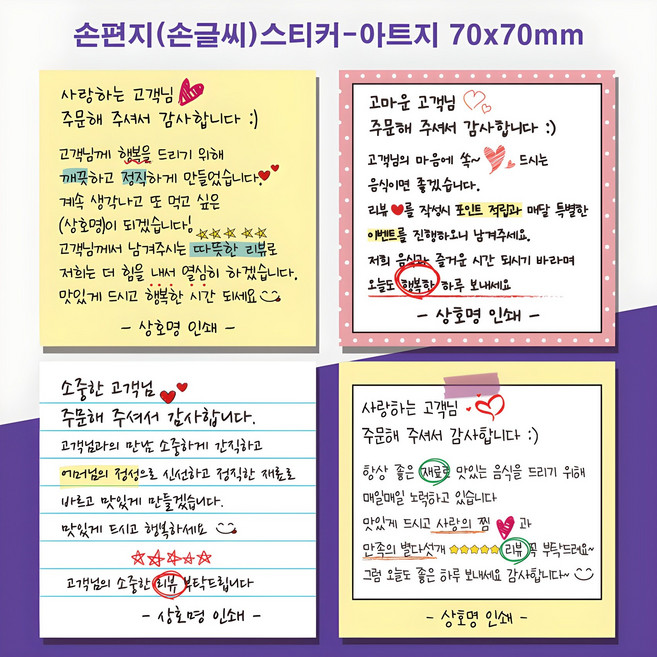 손편지(손글씨)스티커-아트지 70x70mm
사랑하는 고객님
주문해 주셔서 감사합니다 :)
고객님께 행복을 드리기 위해
깨끗하고 정직하게 만들었습니다.
계속 생각나고 또 먹고 싶은
(상호명)이 되겠습니다!
고객님께서 남겨주시는 따뜻한 리뷰로
저희는 더 힘을 내서 열심히 하겠습니다.
맛있게 드시고 행복한 시간 되세요
- 상호명 인쇄 -
고마운 고객님
주문해 주셔서 감사합니다 :)
고객님의 마음에 쏙~ 드시는
음식이면 좋겠습니다.
리뷰 를 작성시 포인트 적립과 매달 특별한
이벤트를 진행하오니 남겨주세요.
저희 음식과 즐거운 시간 되시기 바라며
오늘도 행복한 하루 보내세요
- 상호명 인쇄 -
소중한 고객님
주문해 주셔서 감사합니다.
고객님과의 만남 소중하게 간직하고
어머님의 정성으로 신선하고 정직한 재료로
바르고 맛있게 만들겠습니다.
맛있게 드시고 행복하세요
고객님의 소중한 리뷰 부탁드립니다
- 상호명 인쇄 -
사랑하는 고객님
주문해 주셔서 감사합니다 :)
항상 좋은 재료로 맛있는 음식을 드리기 위해
매일매일 노력하고 있습니다
맛있게 드시고 사랑의 찜 과
만족의 별다섯개 리뷰 꼭 부탁드려요~
그럼 오늘도 좋은 하루 보내세요 감사합니다~
- 상호명 인쇄 -